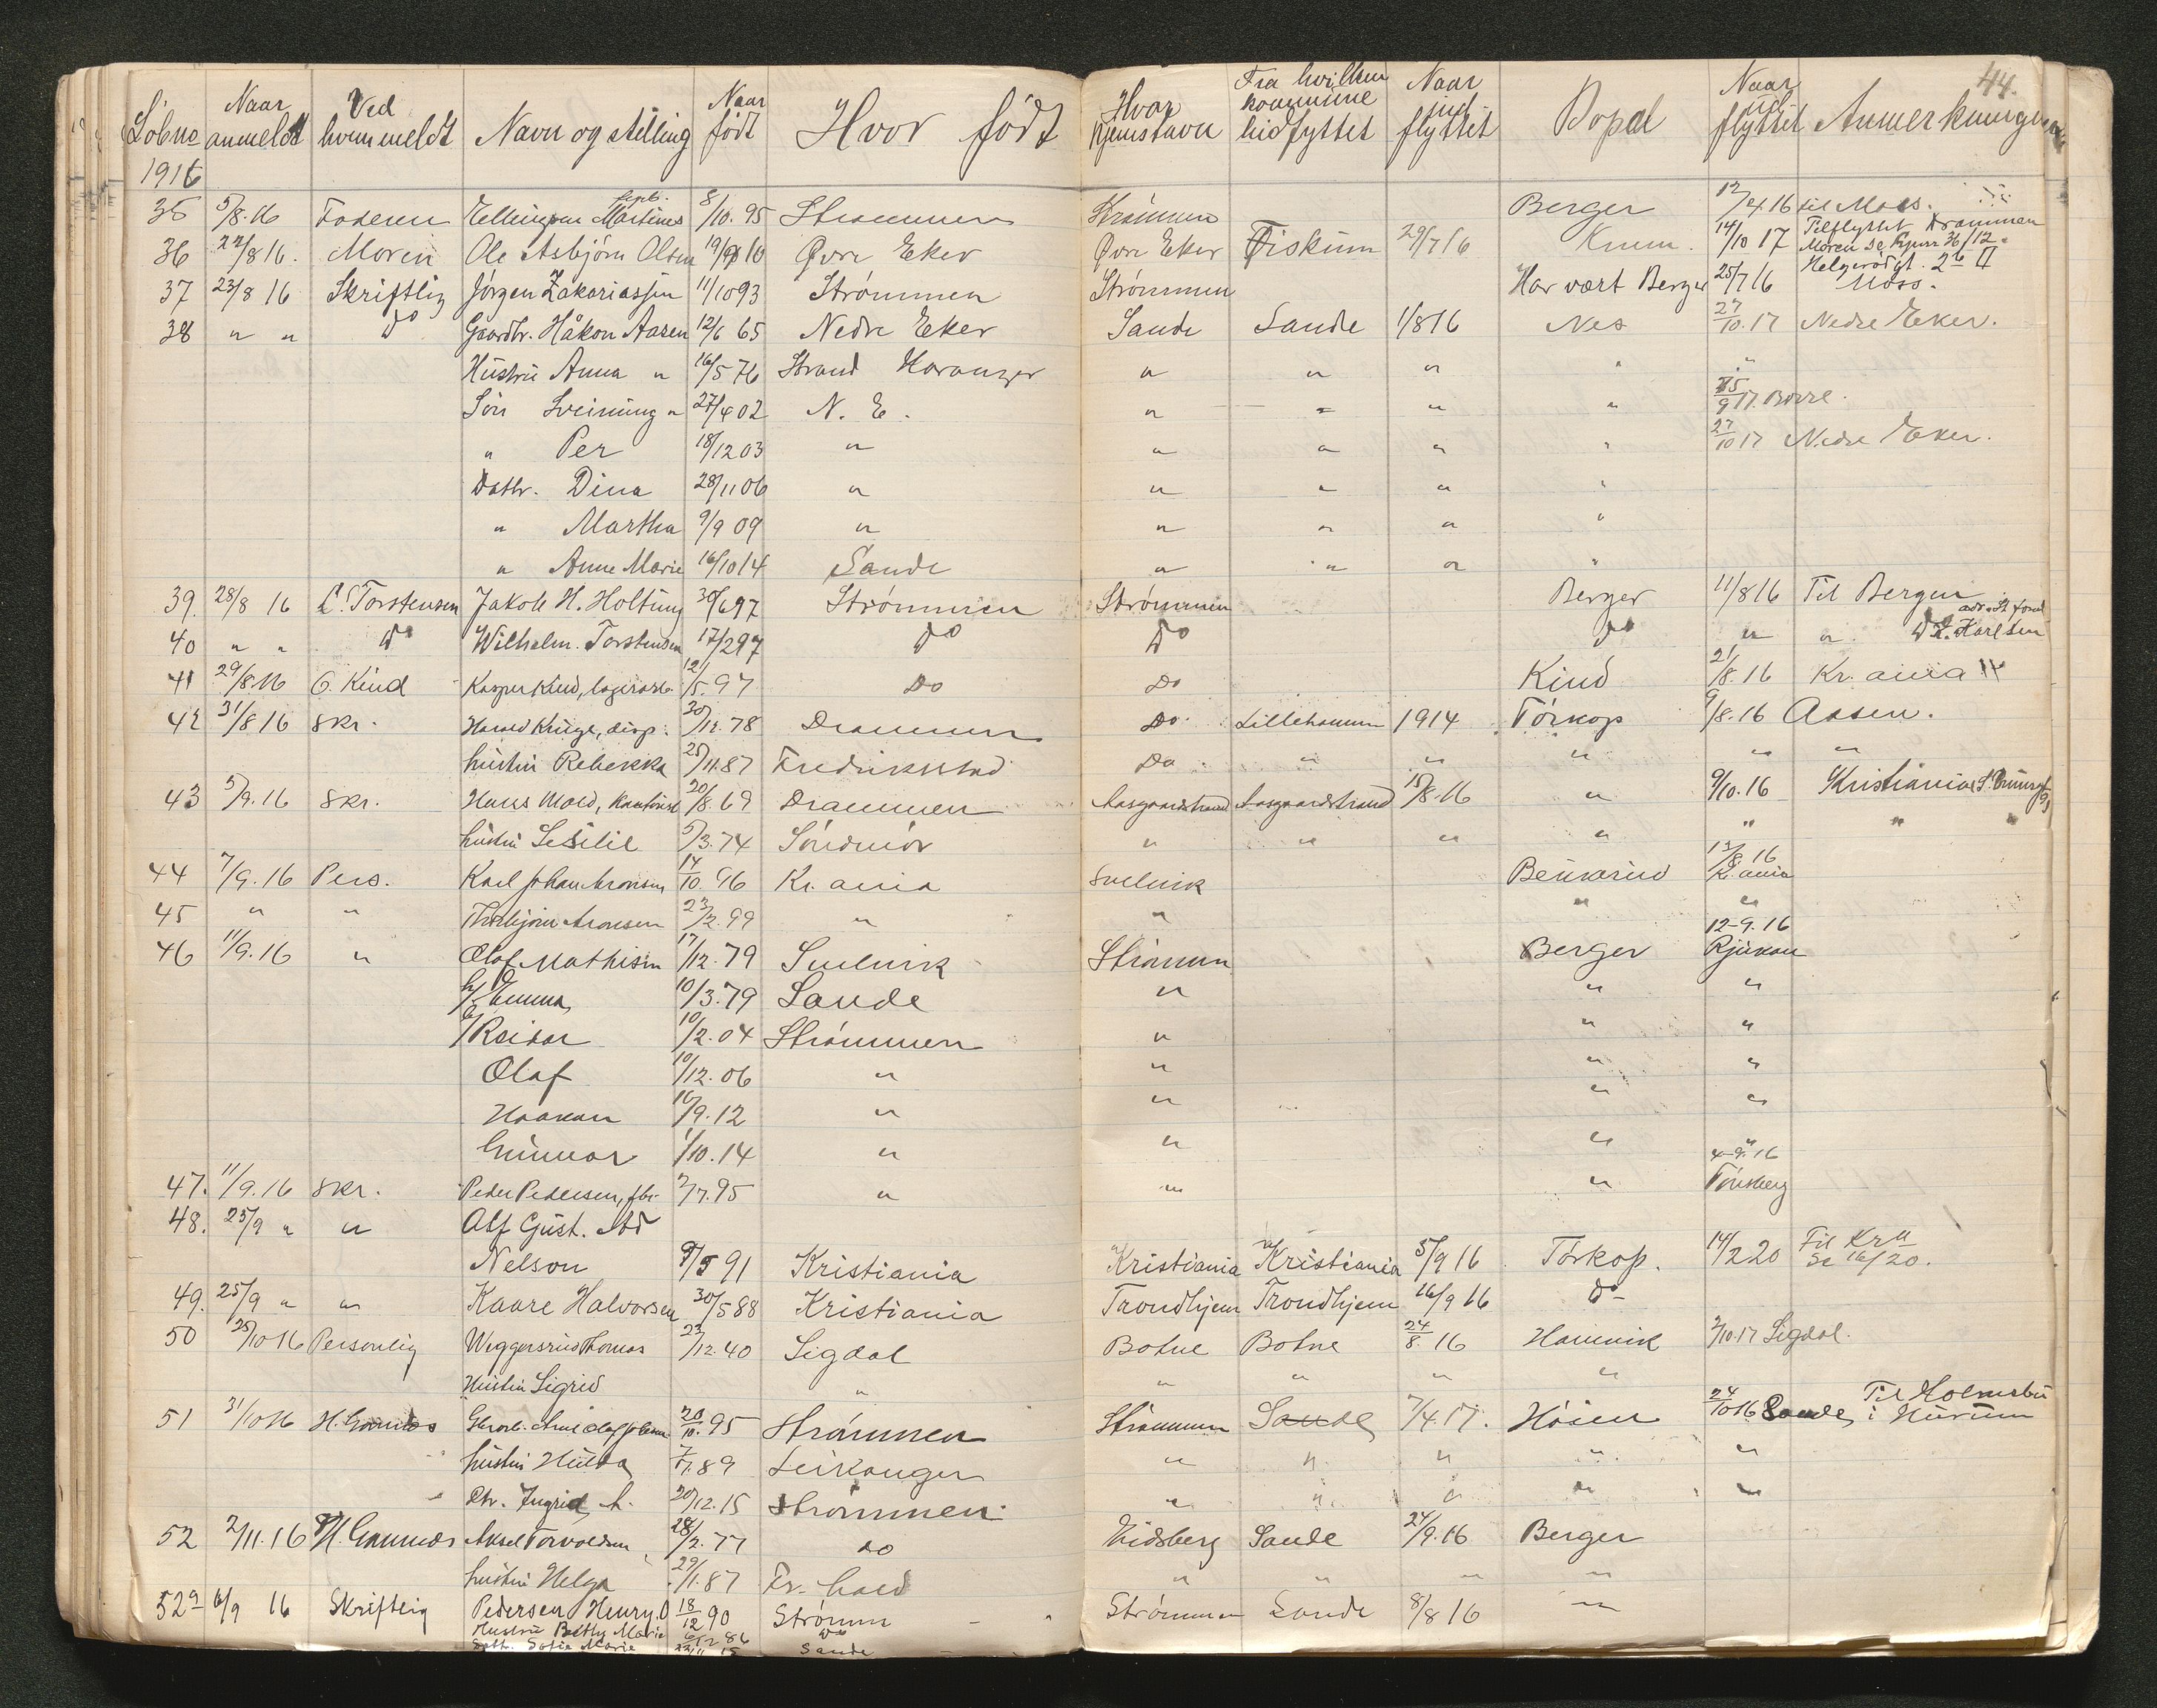 44.
Löbne Naar anmeldt Ved hvem meldt Navn og stilling Naar født Hvor født Hvor hjemstavn Fra hvilken kommune hidflyttet Naar indflyttet Bopæl Naar udflyttet Anmerkninger
1916
35 5/8.16 Faderen Ellingsen Martinus 8/10.95 Strømmen Strømmen Berger 12/4 16 til Moss.
36 22/8 16. Moren Ole Asbjörn Olsen 19/9 10 Øvre Eker Øvre Eker Fiskum 29/7 16 Knem. 14/10 17 Tilflyttet Drammen
37 23/8 16 Skriftlig Jörgen Zakariassen 11/10 93 Strömmen Strömmen Har vært Berger 25/7 16 Moss.
38 " " Do Gaardbr. Håkon Aasen 12/6 65 Nedre Eker Sande Sande 1/8 16 Nes 27/10.17 Nedre Eker.
Hustru Anna " 16/5 76 Strand " " " " "
Sön Sveinung " 27/4 02 N. E. " " " " 15/9 17. Borre.
" Per 18/12 03 " " " " " 27/10 17 Nedre Eker.
Dattr. Dina 28/11 06 " " " " "
" Martha 9/9 09 " " " " "
" Anne Marie 16/10 14 Sande " " " "
39. 28/8 16 L. Torstensen Jakob H. Holtung 30/6 97 Strömmen Strömmen Berger 11/8 16 Til Bergen
40 " " Do Wilhelm. Torstensen 17/2 97 Do Do Do " " Do Karlsen
41 29/8.16 O. Kind Kasper Kind, lagerarb. 12/5.97 Do Do Kind 21/8.16 Kr.ania
42 31/8 16 Skr. Harald Kruge, disp. 30/12.78 Drammen Do. Lillehammer 1914 Törkop 9/8.16 Aasen.
hustru Rebekka 25/11.87 Fredrikstad Do " " " " "
43 5/9.16 Skr. Hans Mold, 20/8.69 Drammen Aasgaardstrand Aasgaardstrand 15/8.16 " 9/10.16 Kristiania
hustru Sesilie 5/3.74 Söndmör " " " " " " "
44 7/9.16 Pers. Karl Johan Aronsen 14/10.96 Kr.ania Svelvik 13/8 16 Kr.ania
45 " " Thorbjörn Aronsen 23/2.99 " " " "
46 11/9.16 " Olaf Mathisen 17/12.79 Svelvik Strömmen Berger 12-9.16 Rjukan
Emma 10/3.79 Sande " " "
Reidar 10/2.04 Strömmen " " "
Olaf 10/12.06 " " " "
Haakon 16/9.12 " " " "
Gunnar 1/10.14 " " " "
47. 11/9.16 Skr. Peder Pedersen, fbr. 2/7.95 " " " 4-9.16 Tönsberg
48. 25/9 " " Alf Gust.
Nelson 9/5 91 Kristiania Kristiania Kristiania 5/9 16 Törkop. 14/2 20 Til Kra Se 16/20.
49. 25/9 " " Kaare Halvorsen 30/5 88 Kristiania Trondhjem Trondhjem 16/9 16 Do
50 25/10 16 Personlig Weggersrud Thomas 23/12.40 Sigdal Botne Botne 24/8.16 Havnvik 2/10.17 Sigdal.
Hustru Sigrid " " " " "
51 31/10 16 H. Grannes 20/10.95 Strömmen Strömmen Sande 7/4.17. Höien 24/10 16 Sande, Til Holmsbu i Hurum
hustru Hulda 7/7.89 Leikanger " " " " "
Dtr. Ingrid 20/12.15 Strömmen " " " " "
52 2/11.16 H. Grannes Aksel Torvaldsen 28/2.77 do Eidsberg Sande 24/9.16 Berger
hustru Helga 29/1.87 Fr. hald " " " "
52a 6/9 16 Skriftlig Pedersen Henry O 18/12 90 Strömm Strömmen Sande 8/8 16 "
Hustru Betty Marie 86 Do
Datt. Sofie Marie 15 Sande